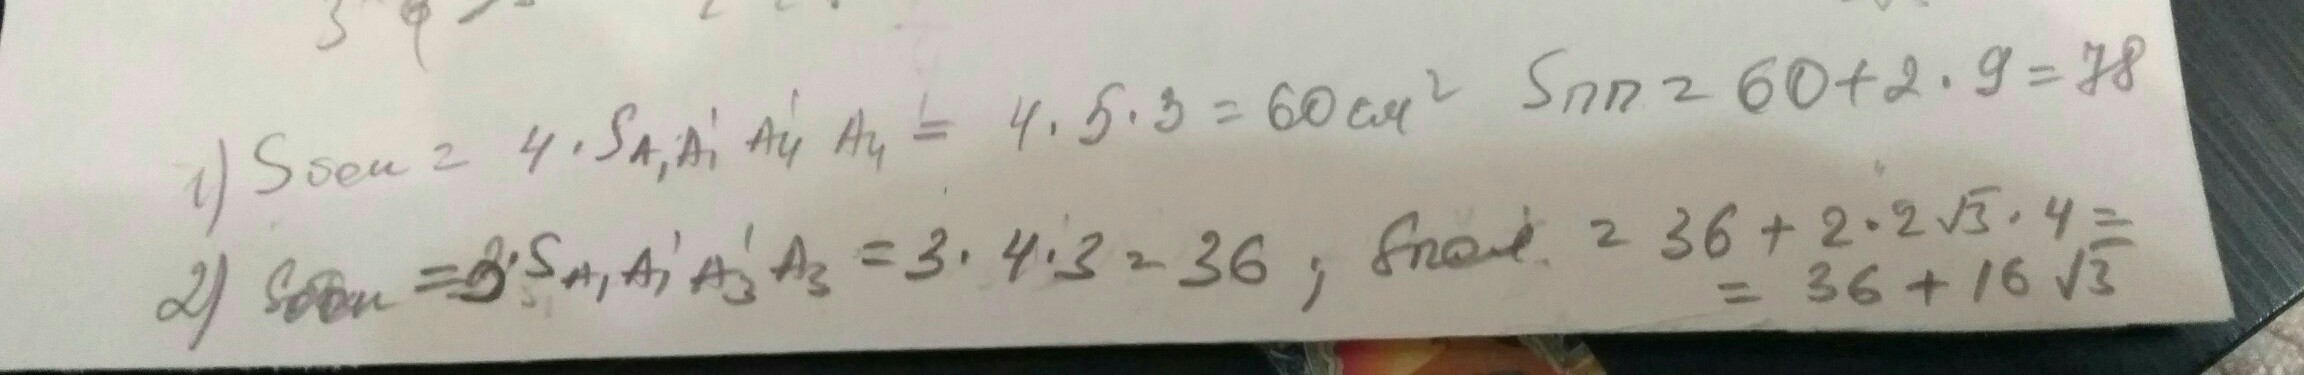 1) Sбок = 4 · S A₁A₁' A₄' A₄ = 4 · 5 · 3 = 60 см² Sпп = 60 + 2 · 9 = 78
2) Sбок = 3 · S A₁A₁'A₃'A₃ = 3 · 4 · 3 = 36 ; Sпол. = 36 + 2 · 2√3 · 4 =
= 36 + 16√3